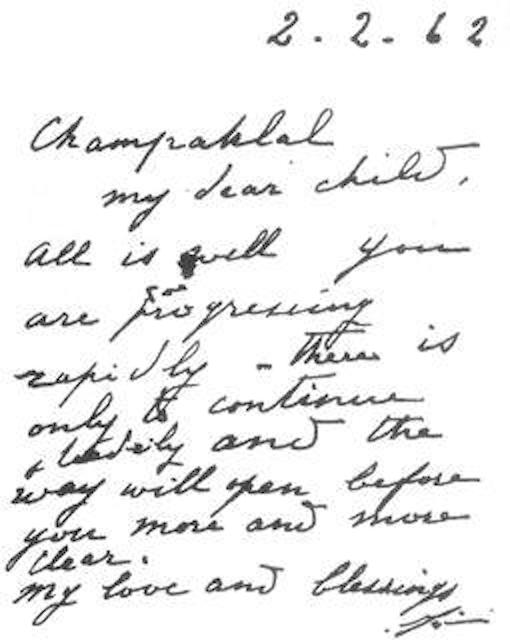 2.2.62
Champaklal
my dear child,
all is well you
are progressing
rapidly - there is
only to continue
steadily and the
way will open before
you more and more
clear.
my love and blessings